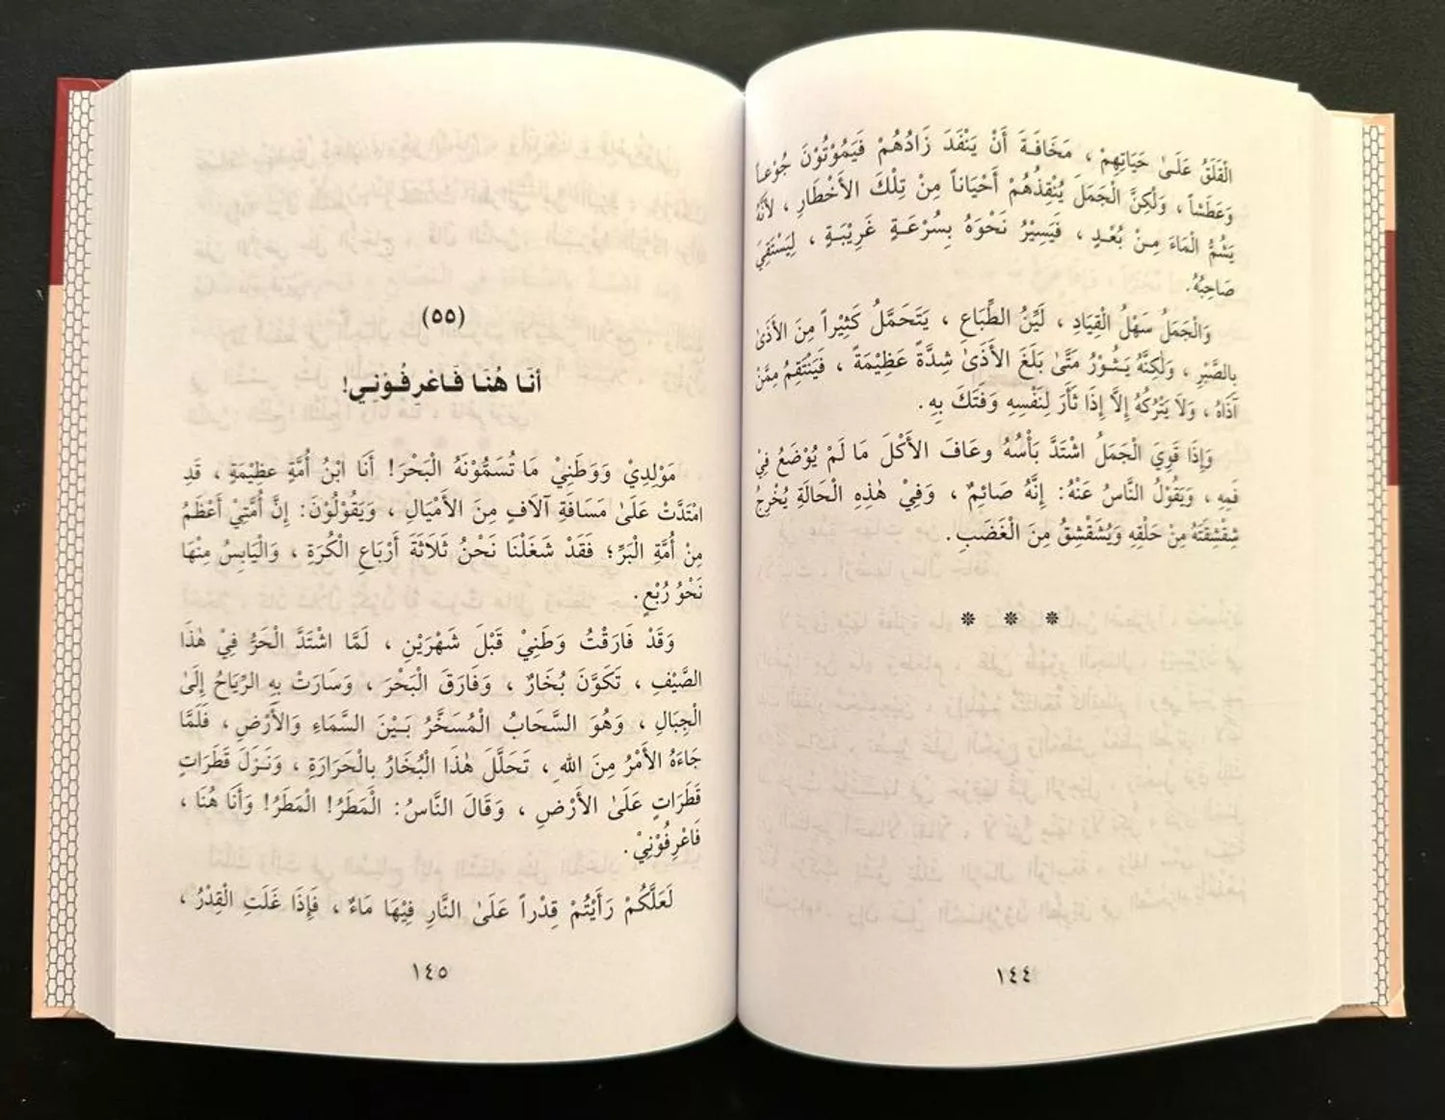 الْقَلَقُ عَلَىٰ حَيَاتِهِمْ ، مَخَافَةَ أَنْ يَنْفَدَ زَادُهُمْ فَيَمُوْتُوْنَ جُوْعاً
وَعَطَشاً ، وَلٰكِنَّ الْجَمَلَ يُنْقِذُهُمْ أَحْيَاناً مِنْ تِلْكَ الأَخْطَارِ ، لأَنَّهُ
يَشُمُّ الْمَاءَ مِـنْ بُعْـدٍ ، فَيَسِيْرُ نَحْوَهُ بِسُرْعَـةٍ غَرِيْبَـةٍ ، لِيَسْتَقِيَ
صَاحِبُهُ.
وَالْجَمَلُ سَهْلُ الْقِيَادِ ، لَيِّنُ الطِّبَاعِ ، يَتَحَمَّلُ كَثِيْراً مِنَ الأَذَىٰ
بِالصَّبْرِ ، وَلٰكِنَّهُ يَـثُـوْرُ مَتَىٰ بَلَغَ الأَذَىٰ شِدَّةً عَظِيْمَةً ، فَيَنْتَقِمُ مِمَّنْ
آذَاهُ ، وَلَا يَتْرُكهُ إِلَّا إِذَا ثَأَرَ لِنَفْسِهِ وَفَتَكَ بِهِ .
وَإِذَا قَوِيَ الْجَمَلُ اشْتَدَّ بَأْسُهُ وعَافَ الأَكْلَ مَا لَمْ يُوْضَعْ فِيْ
فَمِهِ ، وَيَقُوْلُ النَّاسُ عَنْهُ: إِنَّهُ صَائِمٌ ، وَفِيْ هٰذِهِ الْحَالَةِ يُخْرِجُ
شِقْشِقَتَهُ مِنْ حَلْقِهِ وَيُشَقْشِقُ مِنَ الْغَضَبِ.
* * *
١٤٤
(٥٥)
أَنَـا هُنَـا فَـاعْرِفُـوْنِـي!
مَوْلِدِيْ وَوَطَنِيْ مَا تُسَمُّوْنَهُ الْبَحْرَ! أَنَا ابْنُ أُمَّةٍ عظِيْمَةٍ ، قَدِ
امْتَدَّتْ عَلَىٰ مَسَافَةِ آلَافٍ مِنَ الأَمْيَالِ ، وَيَقُوْلُوْنَ: إِنَّ أُمَّتِيْ أَعْظَمُ
مِنْ أُمَّةِ الْبَرِّ؛ فَقَدْ شَغَلْنَا نَحْنُ ثَلَاثَةَ أَرْبَاعِ الْكُرَةِ ، وَالْيَابِسُ مِنْهَا
نَحْوُ رُبْعٍ.
وَقَدْ فَارَقْتُ وَطَنِيْ قَبْلَ شَهْرَيْنِ ، لَمَّا اشْتَدَّ الْحَرُّ فِيْ هٰذَا
الصَّيْفِ ، تَكَوَّنَ بُخَارٌ ، وَفَارَقَ الْبَحْرَ ، وَسَارَتْ بِهِ الرِّيَاحُ إِلَىٰ
الْجِبَالِ ، وَهُوَ السَّحَابُ الْمُسَخَّرُ بَـيْـنَ السَّمَاءِ وَالأَرْضِ ، فَلَمَّا
جَاءَهُ الأَمْرُ مِنَ اللهِ ، تَحَلَّلَ هٰذَا الْبُخَارُ بِالْحَرَارَةِ ، وَنَـزَلَ قَطَرَاتٍ
قَطَرَاتٍ عَلَىٰ الأَرْضِ ، وَقَالَ النَّاسُ: الْمَطَرُ! الْمَطَرُ! وَأَنَا هُنَا ،
فَاعْرِفُوْنِيْ.
لَعَلَّكُمْ رَأَيْتُمْ قِدْراً عَلَىٰ النَّارِ فِيْهَا مَاءٌ ، فَإِذَا غَلَتِ الْقِدْرُ ،
١٤٥